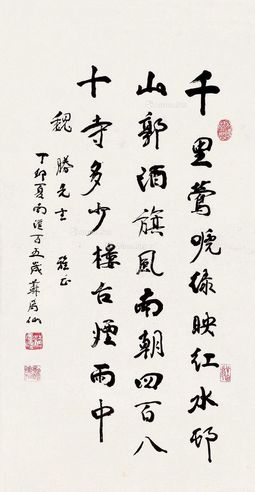 千里鶯啼綠映紅水邨
山郭酒旗風南朝四百八
十寺多少樓台煙雨中
魏勝先生 雅正
丁卯夏南滙百五歲蘇局仙